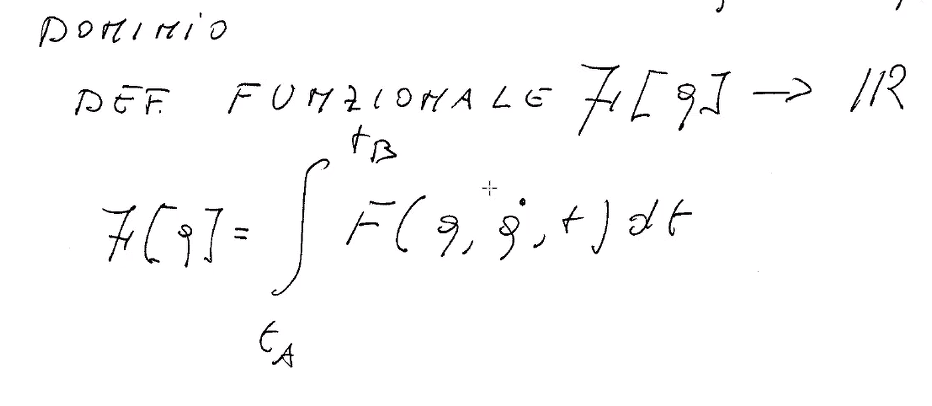 DOMINIO
DEF. FUNZIONALE ℱ[q] → ℝ
ℱ[q] = ∫_{t_A}^{t_B} F(q, q̇, t) dt